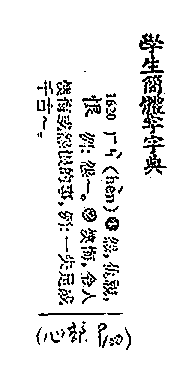 學生簡體字字典
1620 ㄏㄣˋ (hèn) ❶ 怨,仇恨,
恨 例:怨～。❷ 懊悔,令人
懊悔或怨恨的事,例:一失足成
千古～。
(心部 P150)